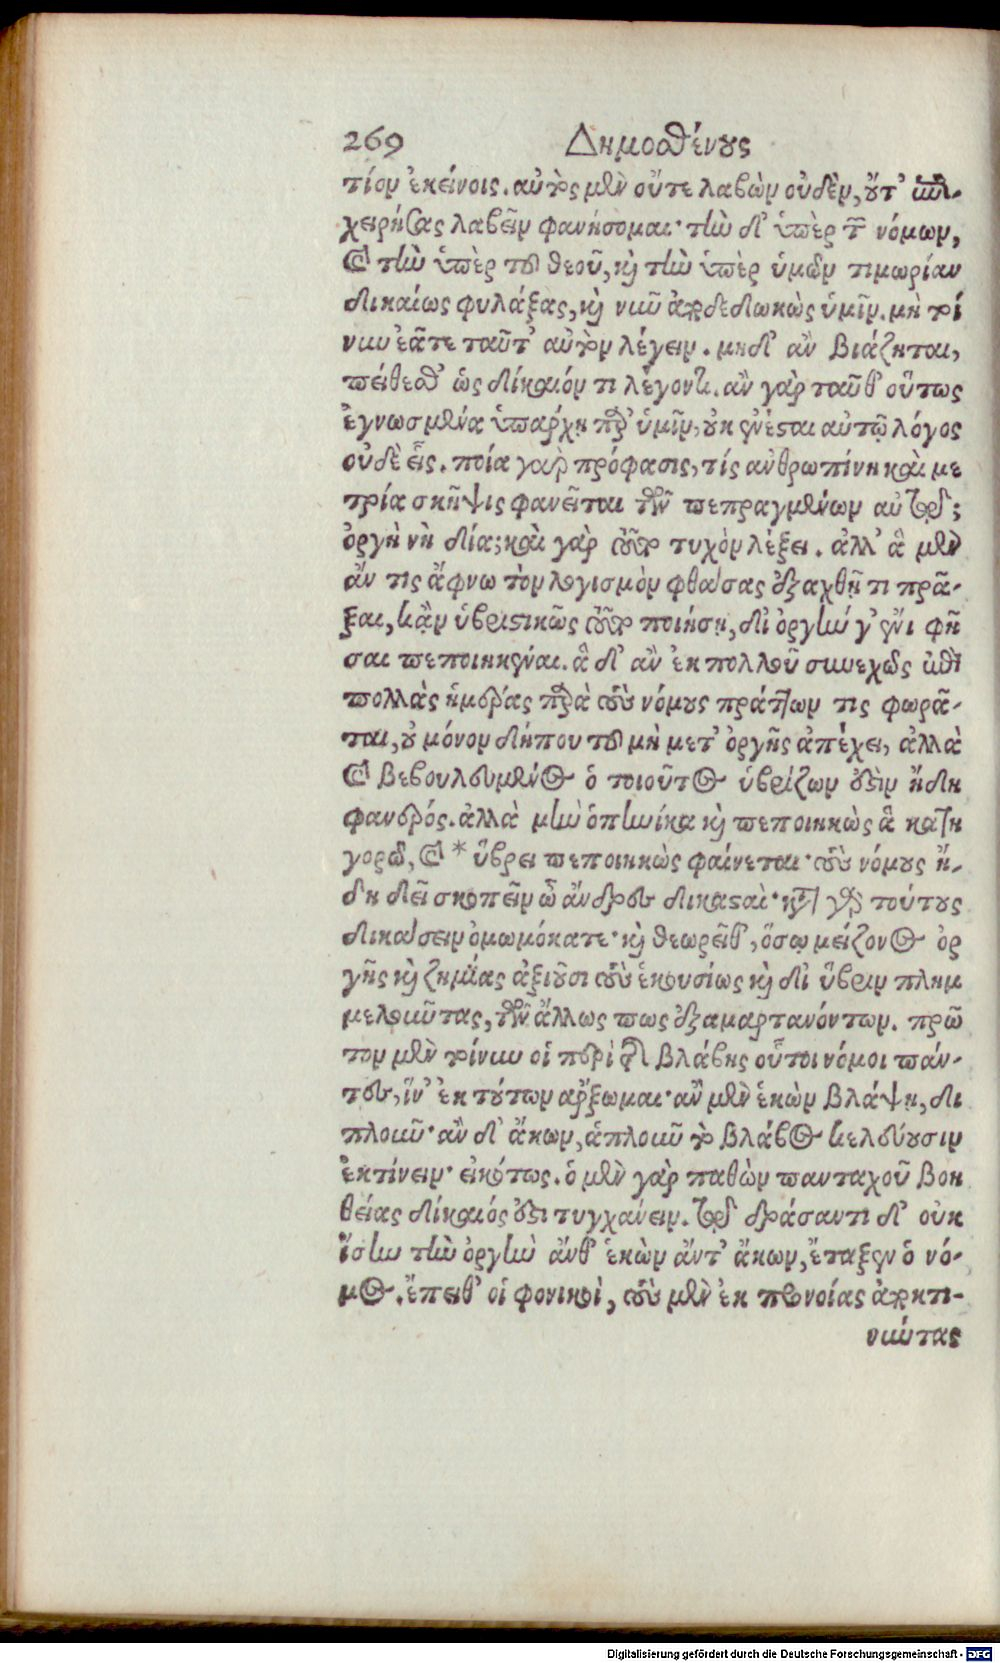 269 Δημοσθένους
τίον ἐκείνοις. αὐτὸς μὲν οὔτε λαβὼν οὐδὲν, οὔτ' ἐπι-
χειρήσας λαβεῖν φανήσομαι· τὴν δ' ὑπὲρ τῶν νόμων,
καὶ τὴν ὑπὲρ τοῦ θεοῦ, καὶ τὴν ὑπὲρ ὑμῶν τιμωρίαν
δικαίως φυλάξας, καὶ νῦν ἀποδεδωκὼς ὑμῖν. μὴ τοί
νυν ἐᾶτε ταῦτ' αὐτὸν λέγειν. μηδ' ἂν βιάζηται,
πείθεσθ' ὡς δίκαιόν τι λέγοντι. ἂν γὰρ ταῦθ' οὕτως
ἐγνωσμένα ὑπάρχῃ παρ' ὑμῖν, οὐκ ἐνέσται αὐτῷ λόγος
οὐδὲ εἷς. ποία γὰρ πρόφασις, τίς ἀνθρωπίνη καὶ με
τρία σκῆψις φανεῖται τῶν πεπραγμένων αὐτῷ;
ὀργὴ νὴ δία; καὶ γὰρ τοῦτο τυχὸν λέξει. ἀλλ' ἃ μὲν
ἄν τις ἄφνω τὸν λογισμὸν φθάσας ἐξαχθῇ τι πρᾶ-
ξαι, κἂν ὑβριστικῶς τοῦτο ποιήσῃ, δι' ὀργήν γ' ἔνι φῆ
σαι πεποιηκέναι. ἃ δ' ἂν ἐκ πολλοῦ συνεχῶς ἐπὶ
πολλὰς ἡμέρας παρὰ τοὺς νόμους πράττων τις φωρᾶ-
ται, οὐ μόνον δήπου τοῦ μὴ μετ' ὀργῆς ἀπέχει, ἀλλὰ
καὶ βεβουλευμένος ὁ τοιοῦτος ὑβρίζων ἐστὶν ἤδη
φανερός. ἀλλὰ μὴν ὁπηνίκα καὶ πεποιηκὼς ἃ κατη
γορῶ, καὶ * ὕβρει πεποιηκὼς φαίνεται· τοὺς νόμους ἤ-
δη δεῖ σκοπεῖν ὦ ἄνδρες δικασταὶ· κατὰ γὰρ τούτους
δικάσειν ὀμωμόκατε· καὶ θεωρεῖθ', ὅσῳ μείζονος ὀρ
γῆς καὶ ζημίας ἀξιοῦσι τοὺς ἑκουσίως καὶ δι' ὕβριν πλημ
μελοῦντας, τῶν ἄλλως πως ἐξαμαρτανόντων. πρῶ
τον μὲν τοίνυν οἱ περὶ τῆς βλάβης οὗτοι νόμοι πάν-
τες, ἵν' ἐκ τούτων ἄρξωμαι· ἂν μὲν ἑκὼν βλάψῃ, δι
πλοῦν· ἂν δ' ἄκων, ἁπλοῦν τὸ βλάβος κελεύουσιν
ἐκτίνειν· εἰκότως. ὁ μὲν γὰρ παθὼν πανταχοῦ βοη
θείας δίκαιός ἐστι τυγχάνειν. τῷ δράσαντι δ' οὐκ
ἴσην τὴν ὀργὴν ἄνθ' ἑκὼν ἄντ' ἄκων, ἔταξεν ὁ νό-
μος. ἔπειθ' οἱ φονικοὶ, τοὺς μὲν ἐκ προνοίας ἀποκτι-
νύντας
Digitalisierung gefördert durch die Deutsche Forschungsgemeinschaft - DFG